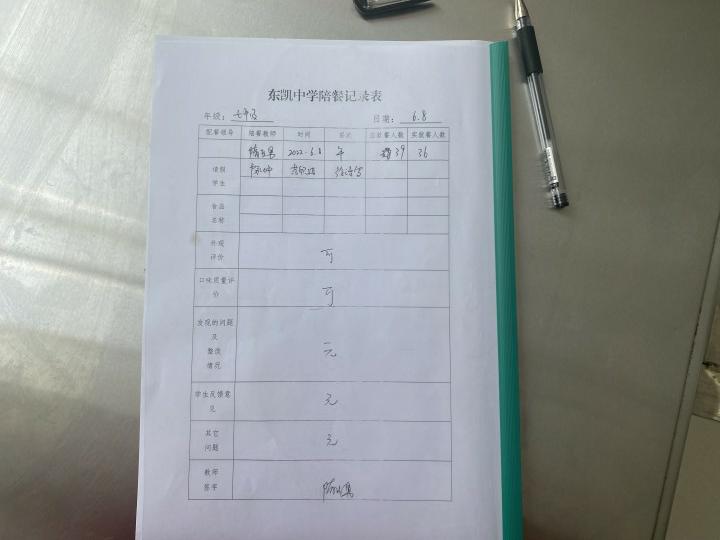 东凯中学陪餐记录表
年级: 日期: 6.8
配餐领导 陪餐教师 时间 餐次 应就餐人数 实就餐人数
2022.6.8 午 39 36
请假
学生
食品
名称
外观
评价 可
口味质量评
价 可
发现的问题
及
整改
情况 无
学生反馈意
见 无
其它
问题 无
教师
签字